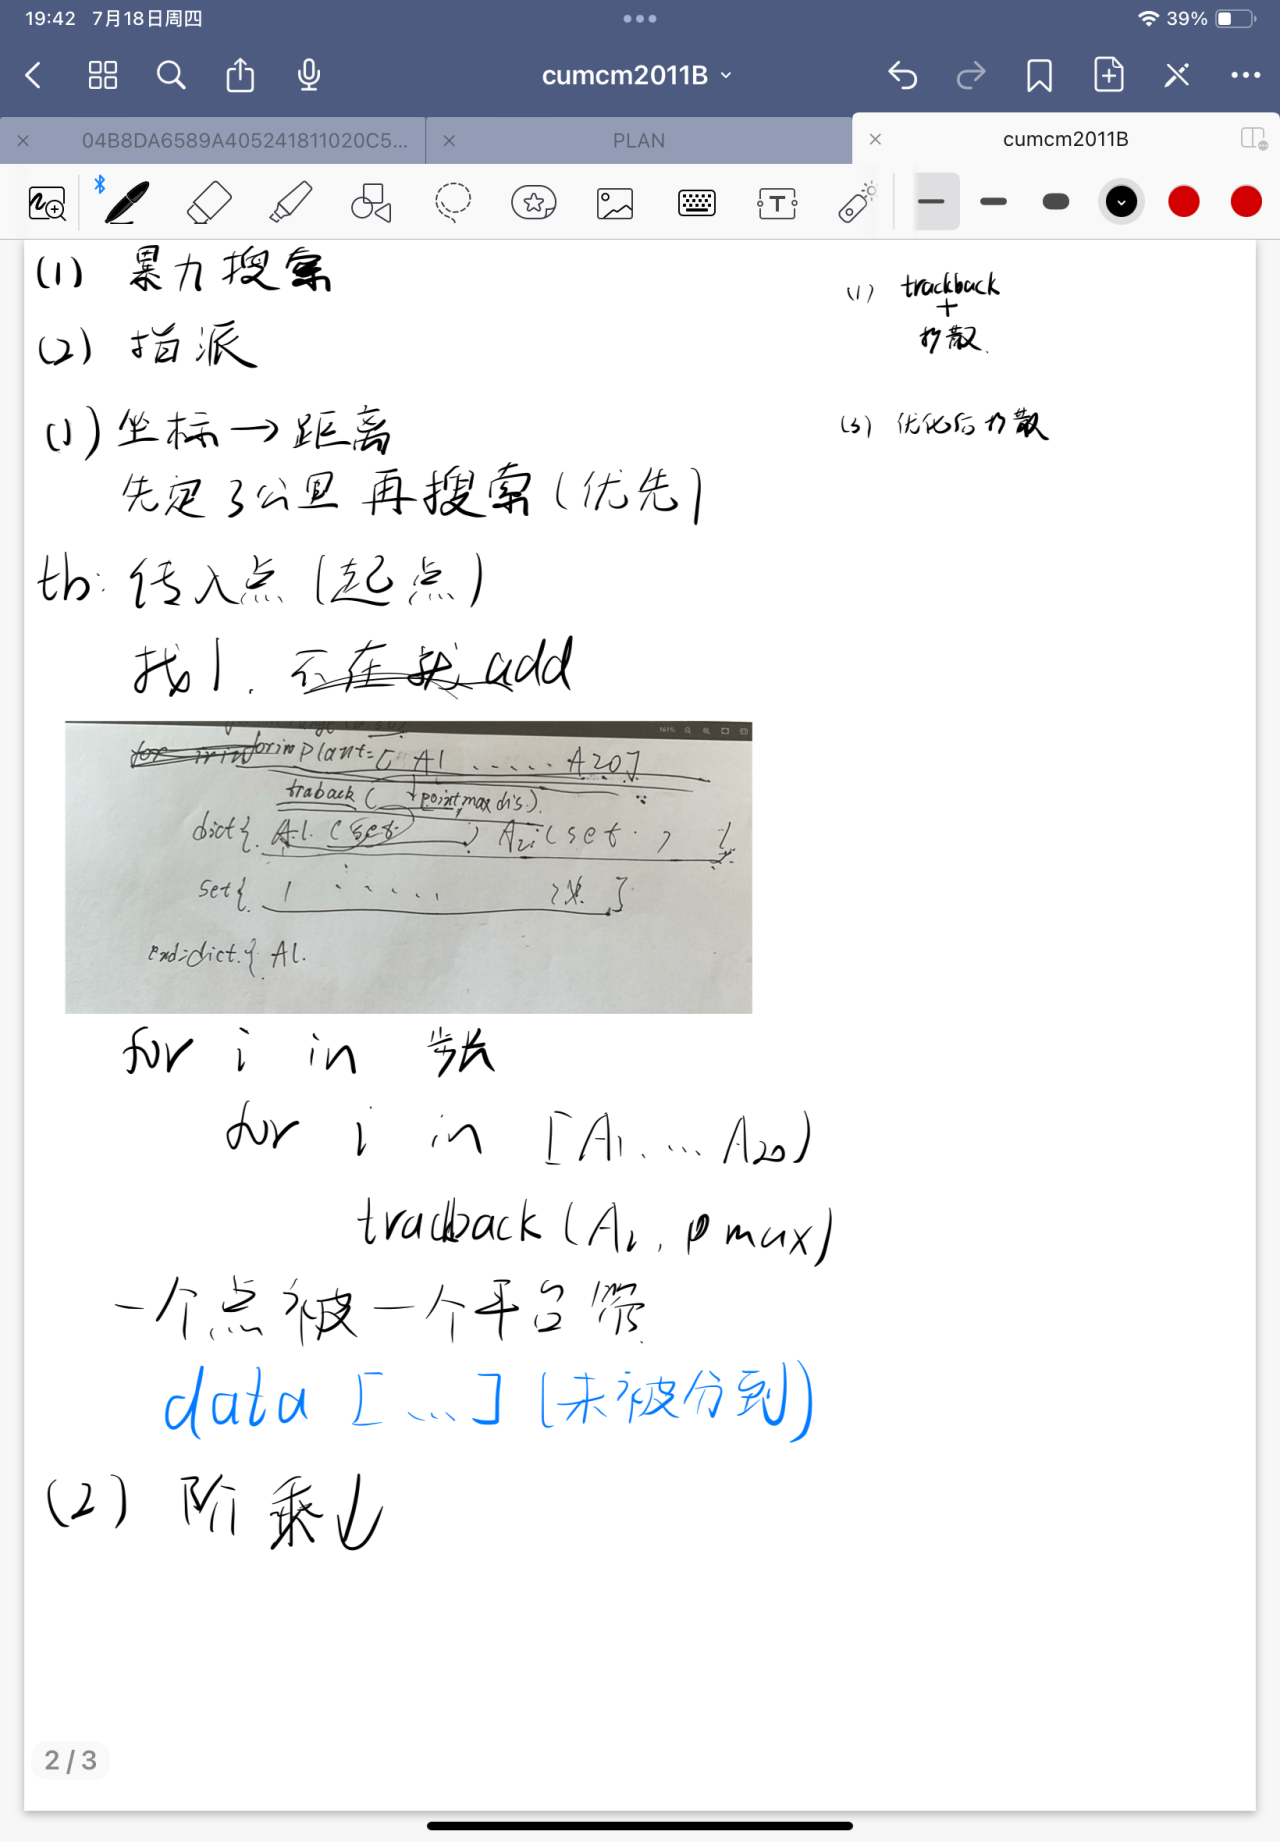 19:42 7月18日周四
39%
cumcm2011B
04B8DA6589A405241811020C5...
PLAN
cumcm2011B
(1) 暴力搜索
(2) 指派
(1) trackback
+
扩散.
(1) 坐标→距离
(3) 优化后扩散
先定3公里再搜索(优先)
tb: 传入点(起点)
找1. 不在就 add
for i in plant=[A1 ..... A20]
traback( point, max dis.)
dict{ A1. (set ) A2:(set. ) }
set{ 1 ...... }
end=dict.{ A1.
for i in 步长
for i in [A1, ... A20)
tracback(Ai, pmax)
一个点被一个平台管
data [...] (未被分到)
(2) 阶乘↓
2 / 3